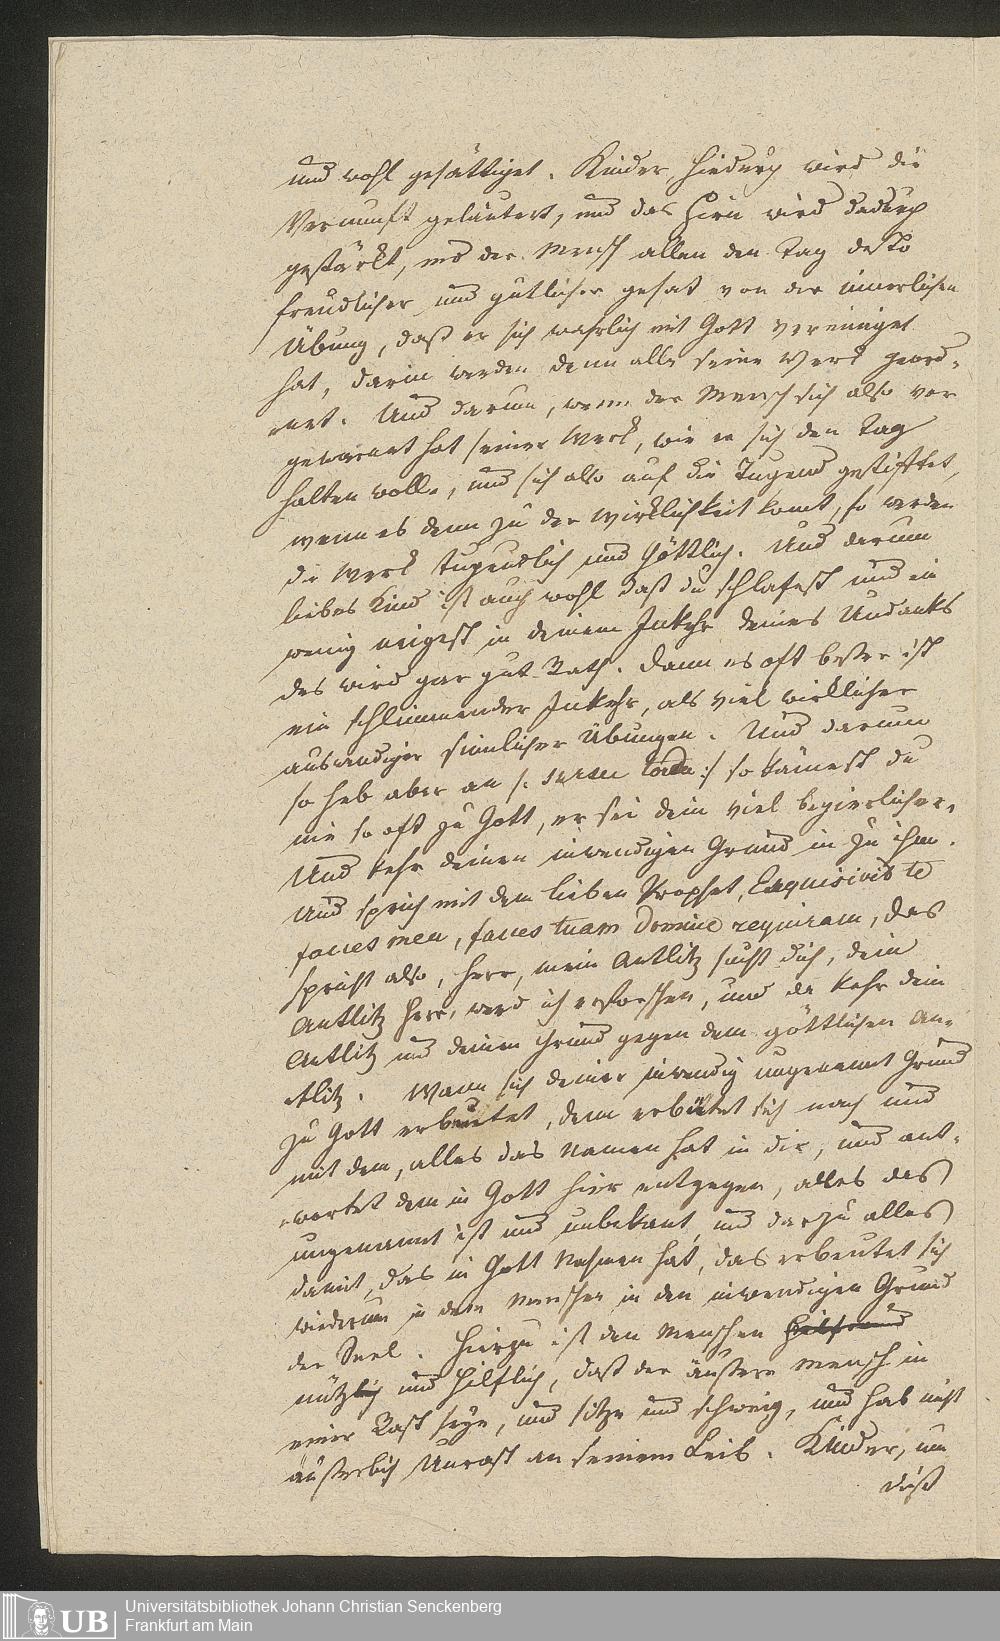 und wohl gesättiget. Kinder, hiedurch wird die
Vernunft geläutert, und das Hirn wird dadurch
gestärckt, und der Mensch allen den Tag desto
freudlicher und gütlicher gesat von der innerlichen
Übung, daß er sich wahrlich mit Gott vereiniget
hat, darin werden denn alle seine Werk geord-
net. Und darum, wenn der Mensch sich also vor
gewarnet hat seiner Werk, wie er sich den Tag
halten wolle, und sich also auf die Tugend gestifftet,
wenn es denn zu der Wirklichkeit komt, so werden
die Werk tugendlich und Göttlich. Und darum
liebes Kind ist auch wohl daß du schlafest und ein
wenig neigest in deinem Inkehr deines Undanks
des wird gar gut Rath. Dann es oft besser ist
ein schlummender Inkehr, als viel wirklicher
auswendiger sinnlicher Übungen. Und darum
so heb aber an /: sursu corda :/ so kämest du
nie so oft zu Gott, er sei dein viel begierlicher.
Und kehr deinen inwendigen Grund in zu ihm.
Und sprich mit dem lieben Prophet, Exquisivit te
facies mea, facies tuam Domine requiram, das
spricht also, Herr, mein Antlitz sucht dich, dein
Antlitz Herr, werd ich erforschen, und da kehr dein
Antlitz und deinen Grund gegen dem göttlichen An-
tlitz. Wann sich deiner inwendig ungenannt Grund
zu Gott erbeutet, dem erbütet sich nach und
mit dem, alles das Namen hat in dir, und ant-
wortet dem in Gott hier entgegen, alles das
ungenannt ist und unbekant, und darzu alles
damit, das in Gott Nahmen hat, das erbeutet sich
wiederum in dem Menschen in den inwendigen Grund
der Seel. Hierzu ist den Menschen
nützlich und hilflich, daß der äußere Mensch in
einer Rast seye, und sitze und schweig, und hab nicht
äußerlich Unrast an seinem Leib. Kinder, um
diß
Universitätsbibliothek Johann Christian Senckenberg
Frankfurt am Main
UB